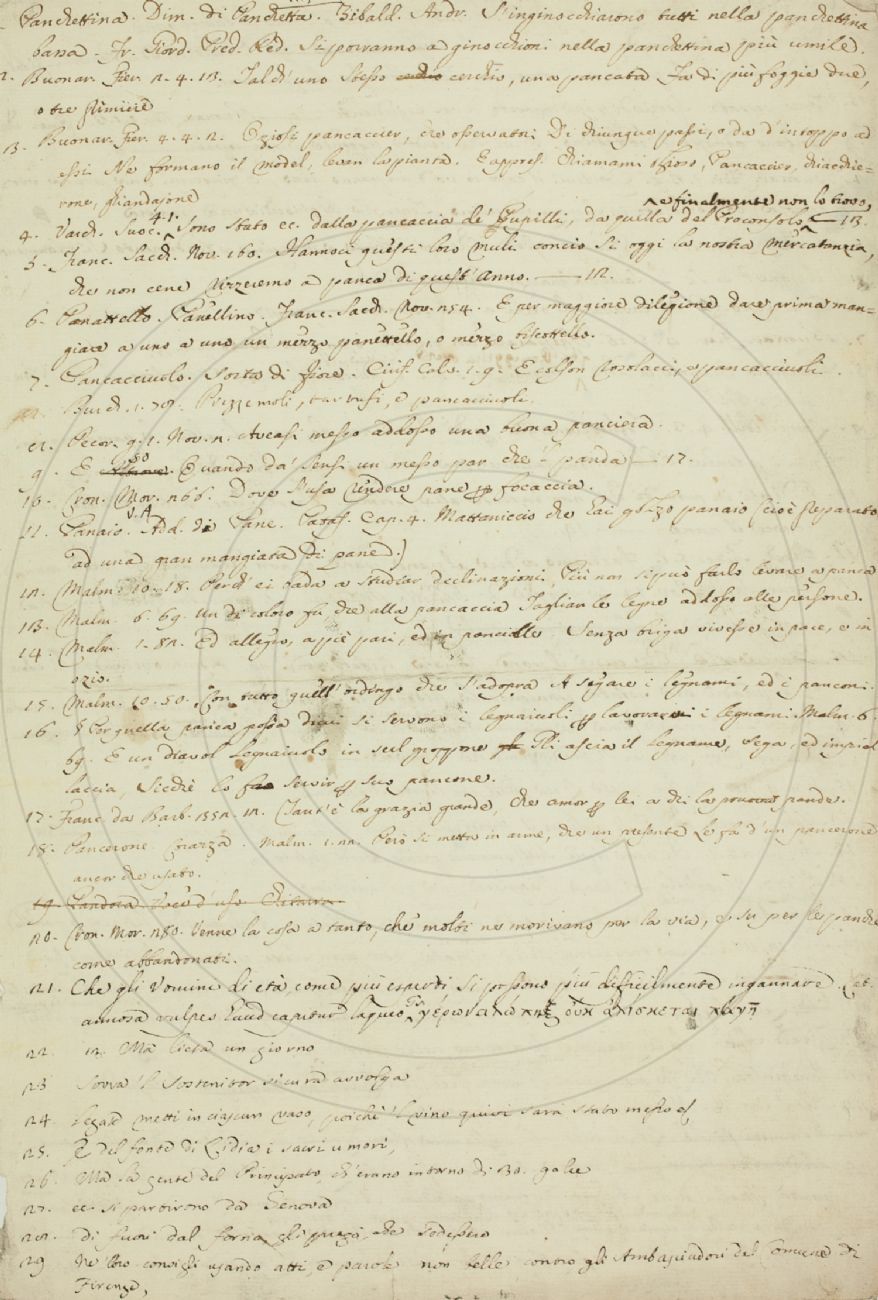 Panchettina. Dim. di Panchetta. Bibald. Andr. S'inginocchiarono tutti nella panchettina
bassa. Fr. Giord. Pred. Red. Si porranno a ginocchioni nella panchettina più umile.
2. Buonar. Fier. 2. 4. 13. Talch' uno stesso cerchio, una pancata Fa di più foggie due,
o tre
3. Buonar. Fier. 4. 4. 2. Oziosi pancaccier, che osservatori Di chiunque passi, o da d'intoppo ad
essi. Ne formano il model, levan la pianta. E appress. Chiamami Pancaccier, chiacchie=
rone,
^ e finalmente non lo trovo,
4. Varch. Suoc. 4. 1. Sono stato ec. dalla pancaccia de' Pupilli, da quella del Proconsolo — 13.
5. Franc. Sacch. Nov. 160. Hannoci questi loro muli concio sì oggi la nostra mercatanzia,
che non cene rizzeremo a panca di quest' anno. — 12.
6. Panattello. Panellino. Franc. Sacch. Nov. 254. E per maggiore dilegione dare prima man=
giare a uno a uno un mezzo panettello, o mezzo biscottello.
7. Pancacciuolo. Sorta di fiore. Ciriff. Calv. 1. 9. E colson rosolacci, e pancacciuoli.
Burch. 1. 79. Prezzemoli, tartufi, e pancacciuoli.
Pecor. g. 1. Nov. 2. Aveasi messo addosso una buona panciera.
9. E 80 Quando da' Sensi un messo par che si panda — 17.
10. Cron. Mor. 266. Dove s'usa rendere pane per focaccia.
11. Panaio. V. A. Add. di Pane. Pataff. Cap. 4. Mattaniccio che panaio (cioè Reparato
ad una gran mangiata di pane.)
12. Malm. 10. 18. Perch' ei bada a studiar declinazioni, Più non si può farlo levare a panca
13. Malm. 6. 69. Un di coloro fu che alla pancaccia Taglian le legne addosso alle persone.
14. Malm. 1. 82. Ed allegro, a piè pari, ed in panciolle Senza briga vivesse in pace, e in
ozio.
15. Malm. 10. 50. Con tutto quell' ordingo che s'adopra A segare i legnami, ed i panconi.
16. Per quella panca possa di cui si servono i legnaiuoli per lavorare i legnami. Malm. 6.
69. E un diavol legnaiuolo in sul groppone Gli ascia il legname, sega, ed impial
laccia, Sicchè lo fa servir per suo pancone.
17. Franc. da Barb. 352. 12. Tant' è la grazia grande, che amor per lei a di la pande.
18. Pancerone. Corazza. Malm. 1. 22. Però si mette in arme, che un presente Le fa d'un pancerone
ancorche usato.
19. Pandora. Voce d'uso. Chitarra.
20. Cron. Mor. 280. Venne la cosa a tanto, che molti ne morivano per la via, e su per le panche
come abbandonati.
21. Che gli Uomini di età, come più esperti si possono più difficilmente ingannare. Lat.
annosa vulpes haud capitur laqueo. Gr. γέρων ἀλώπηξ οὐκ ἁλίσκεται πάγῃ
22. 12. Ma lieta un giorno
23 Sovra 'l sostenitor sicura avvolga
24. Legare metti in ciascun vaso, poichè 'l vino quivi sarà stato messo
25. E del fonte di Lidia i sacri umori,
26. Ma la gente del Principato, ch' erano intorno di 30. galee
27. ec. si partirono da Genova
28. di fuori dal
29 Ne' loro consigli usando atti, e parole non belle contro gli Ambasciadori del Comune di
Firenze,